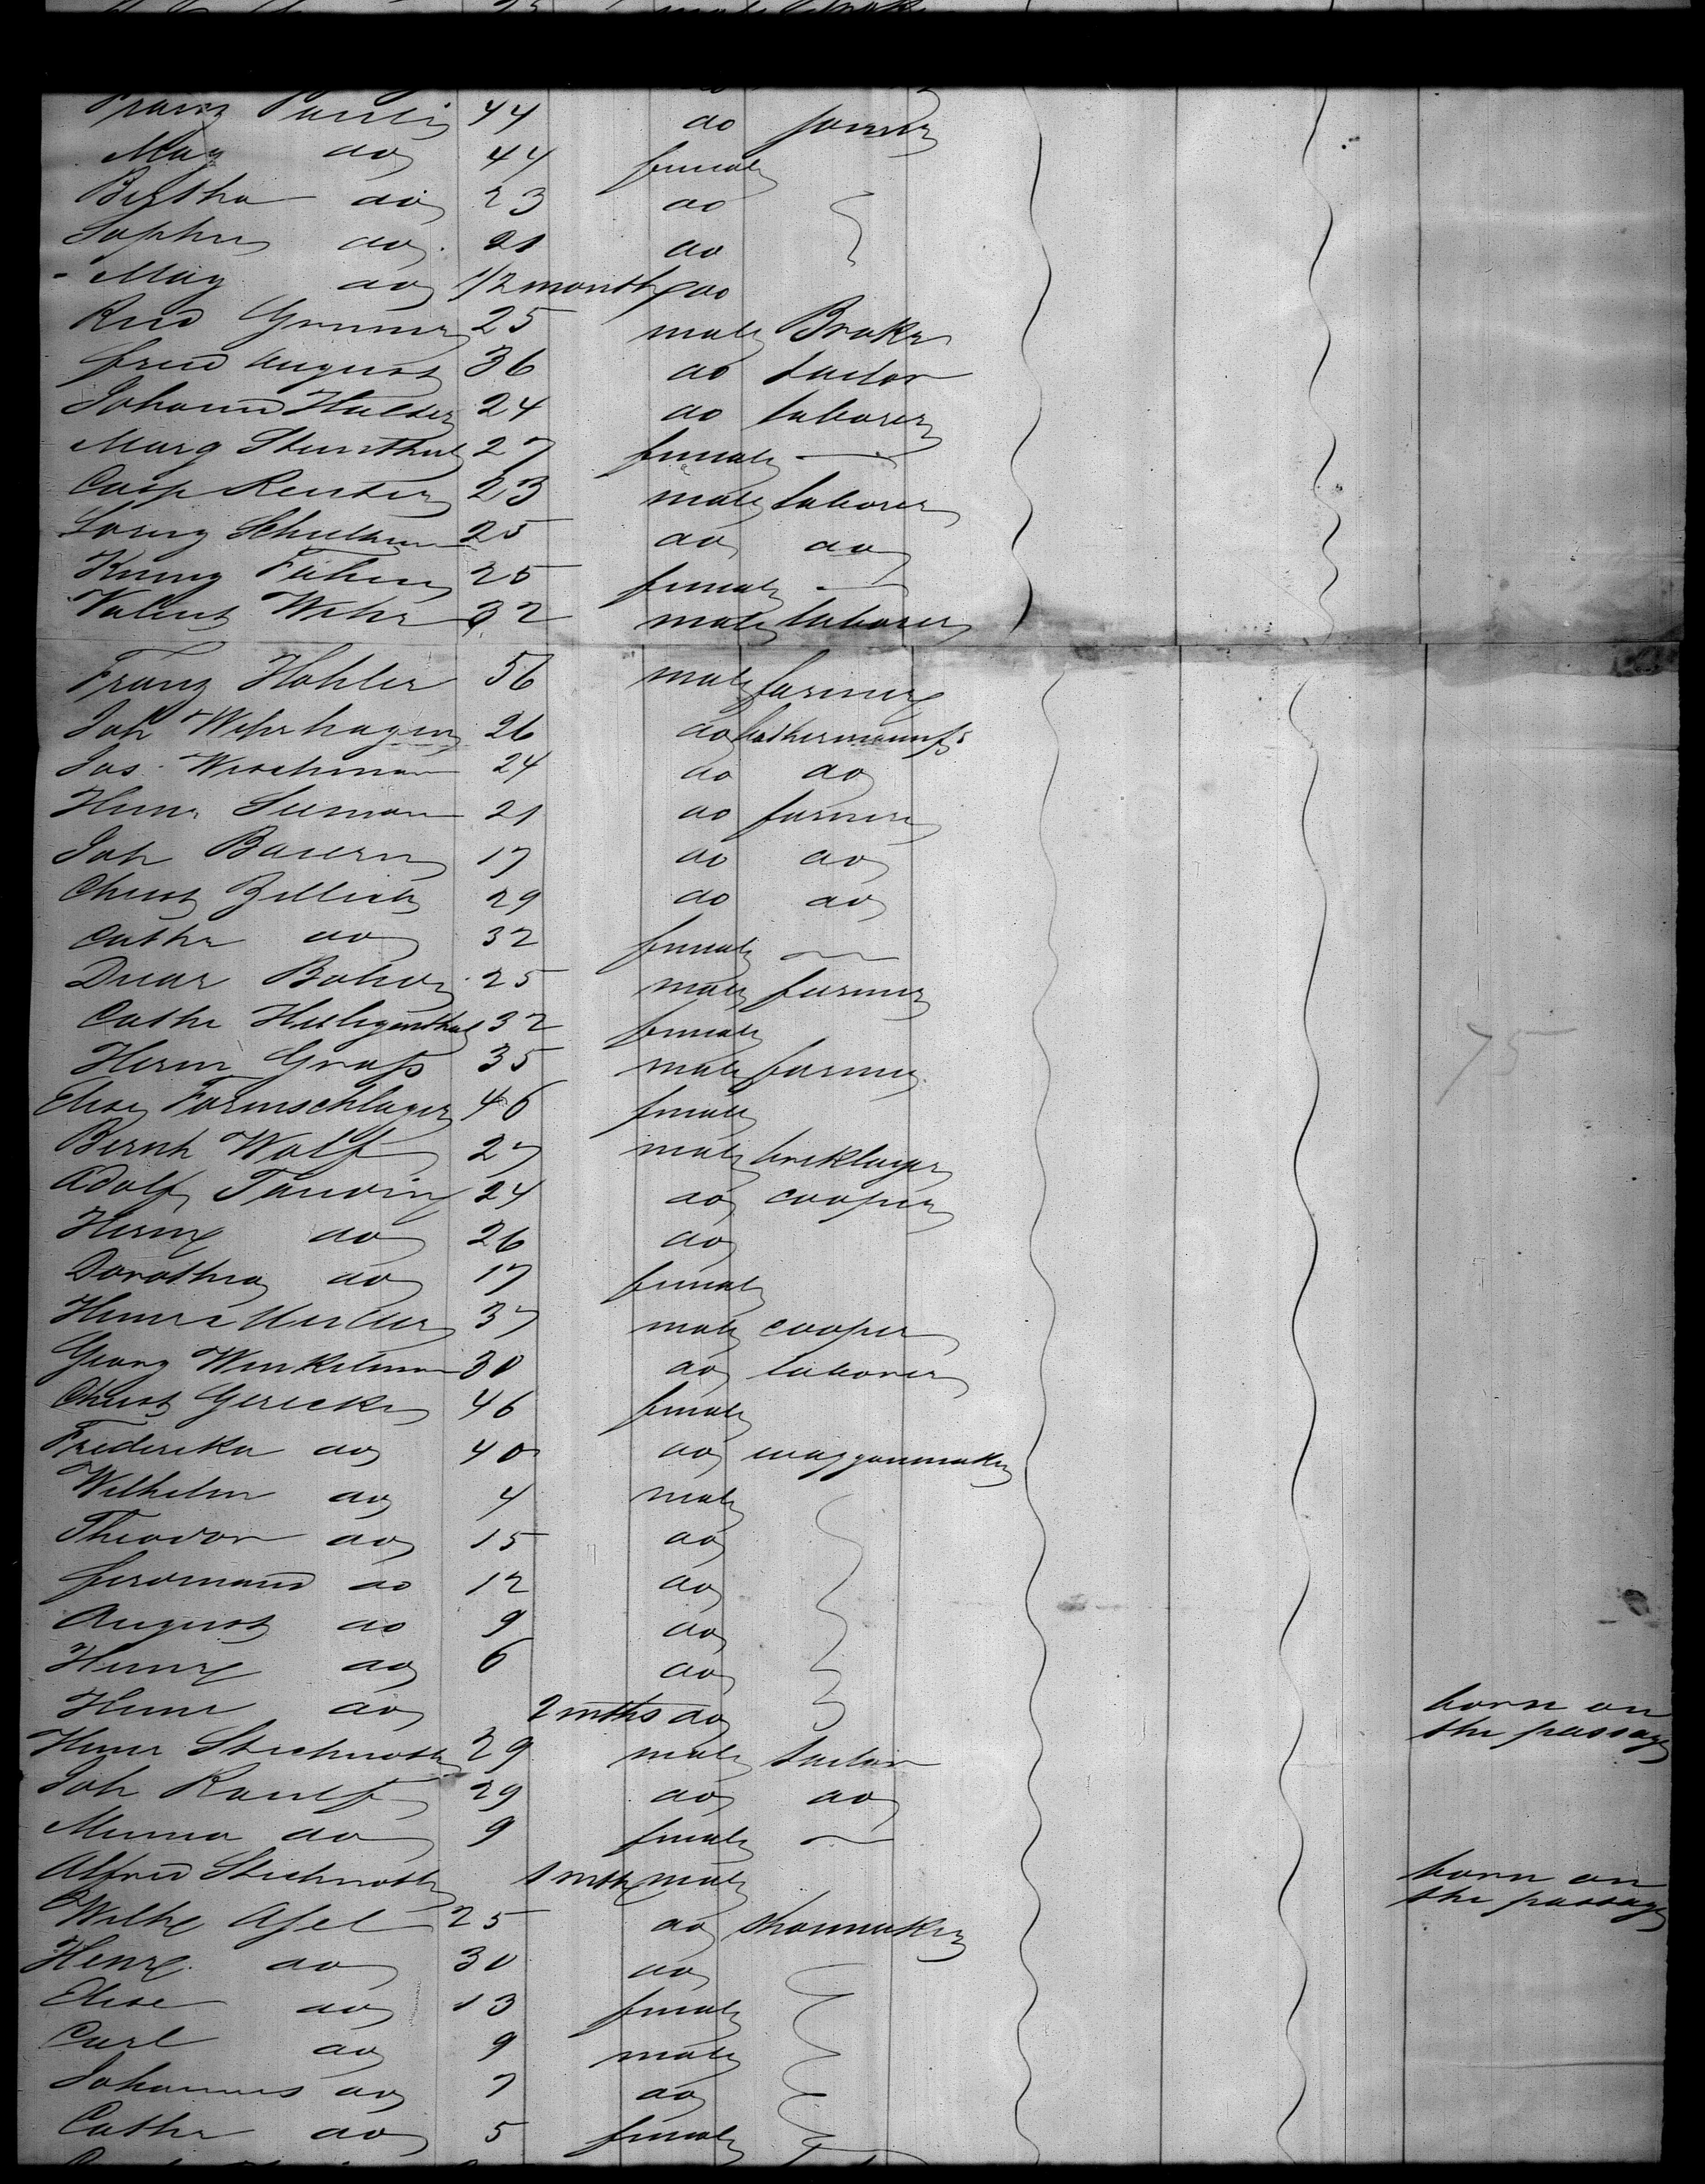 Franz Pauli 44 do farmer
May do 44 female
Bertha do 23 do
Sophie do 21 do
May do 1/2 month do
Rud 25 male Broker
fried August 36 do tailor
Johann Hulder 24 do laborer
Marg Steinthal 27 female —
Casp Reuter 23 male laborer
Lorenz 25 do do
25 female —
Valent Wehr 32 male laborer
Franz Hohler 56 male farmer
Joh Wehrhagen 26 do
Jos Wischman 24 do do
Heinr Seeman 21 do farmer
Joh Bauern 17 do do
Christ Zillich 29 do do
Cathr do 32 female —
25 male farmer
Cathr Heiligenthal 32 female
Herm Graß 35 male farmer
Elise Formschlager 46 female
Bernh Wolf 27 male bricklayer
Adolf 24 do cooper
Herm do 26 do
Dorothea do 17 female
Heinr 37 male cooper
Georg Winkelman 30 do laborer
Christ Gericke 46 female
Frederika do 40 do waggonmaker
Wilhelm do 4 male
Theodor do 15 do
ferdinand do 12 do
August do 9 do
Henry do 6 do
Heinr do 2 mths do born on
the passage
Heinr Stichnoth 29 male tailor
Joh Raulf 29 do do
Minna do 9 female —
Alfred Stichnoth 1 mth male born on
the passage
Wilh Asel 25 do shoemaker
Henry do 30 do
Elise do 13 female
Carl do 9 male
Johannes do 7 do
Cathr do 5 female
75